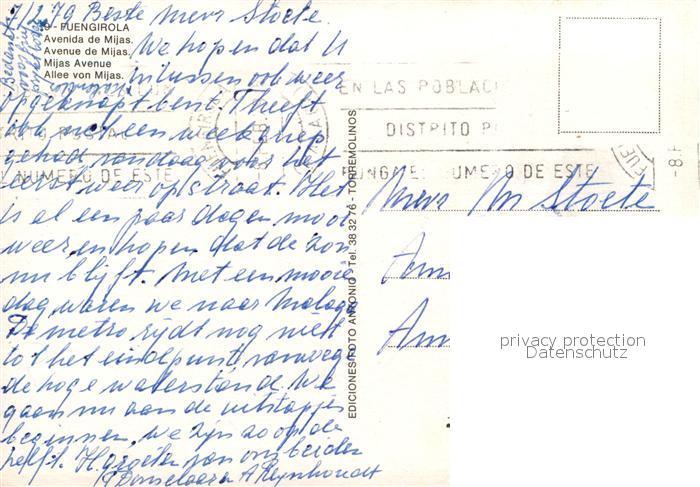 7/2 79 Beste Mevr Stoete.
9 - FUENGIROLA
Avenida de Mijas.
Avenue de Mijas.
Mijas Avenue
Allee von Mijas.
Bedankt
voor
We hopen dat U
intussen ook weer
opgeknapt bent. Theeft
ook met een week griep
gehad vandaag voor het
eerst weer op straat. Het
is al een paar dagen mooi
weer, en hopen dat de zon
nu blijft. Met een mooie
dag waren we naar Malaga
De metro rijdt nog niet
tot het eindpunt vanwege
de hoge waterstand. We
gaan nu aan de uitstapjes
beginnen, we zijn zo op de
helft. H groeten van ons beiden
EN LAS POBLAC
DISTRITO P
PONGA E NUMERO DE ESTE
L NUMERO DE ESTE
-8.F
EDICIONES FOTO ANTONIO - Tel. 38 32 76 - TORREMOLINOS
Mevr M Stoete
Am
Am
privacy protection
Datenschutz